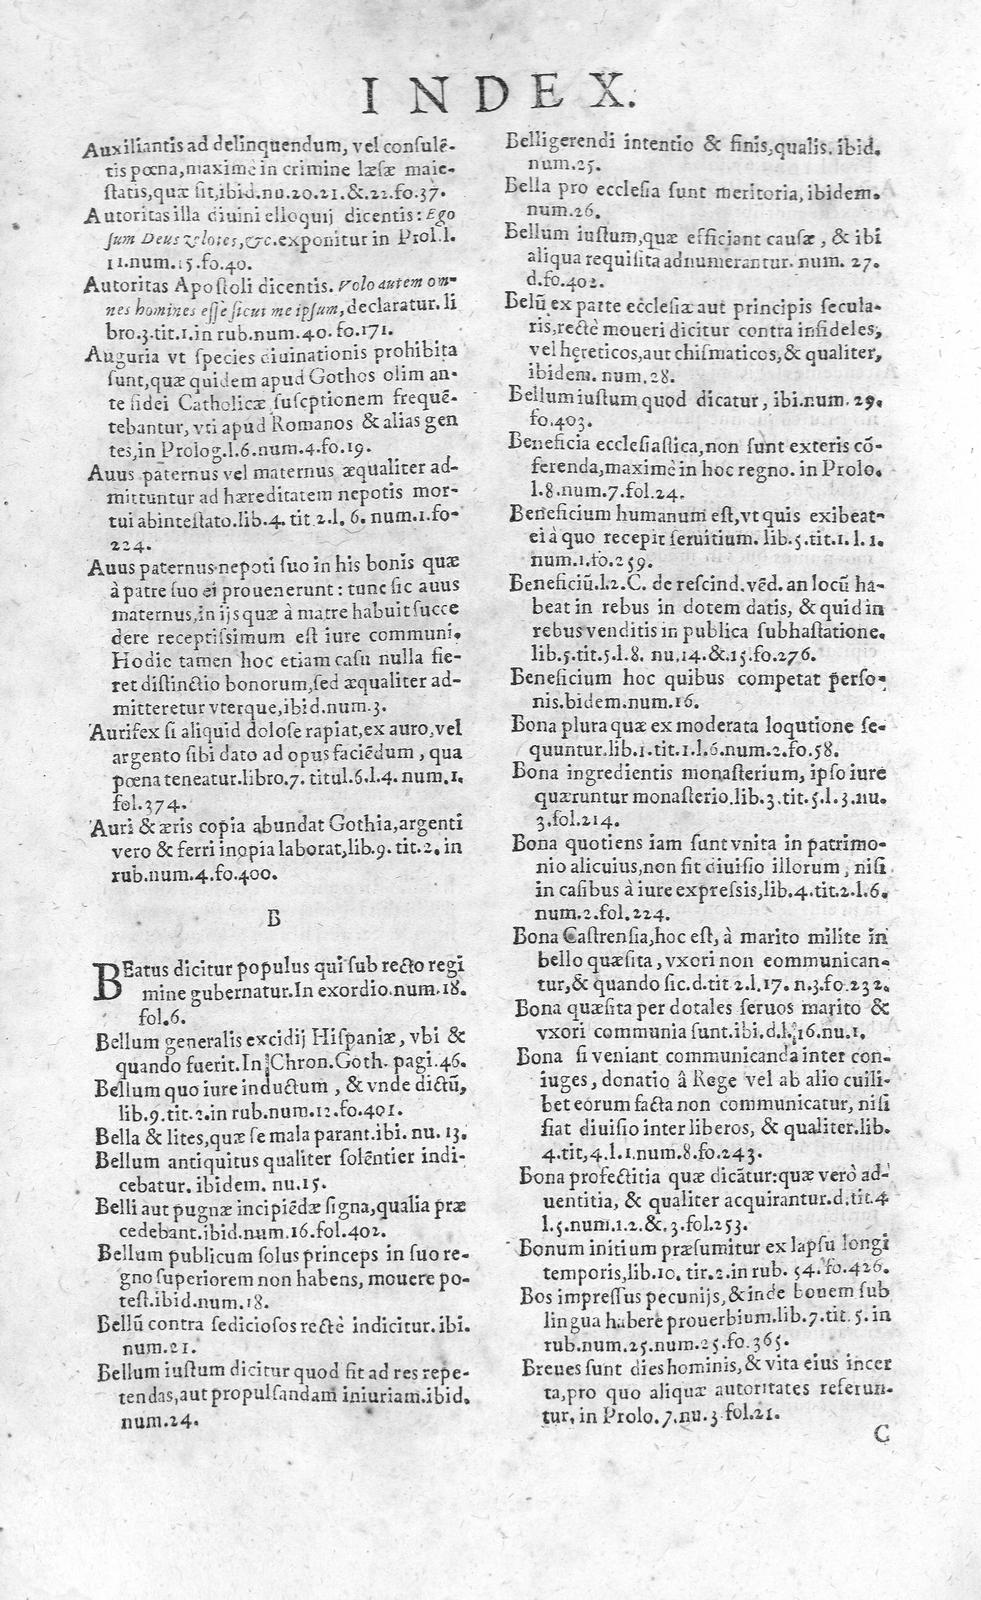 INDEX.
Auxiliantis ad delinquendum, vel conſulẽ-
tis pœna, maximè in crimine læſæ maie-
ſtatis, quæ ſit, ibid. nu. 20. 21. &. 22. fo. 37.
Autoritas illa diuini elloquij dicentis: Ego
ſum Deus zelotes, &c. exponitur in Prol. l.
11. num. 15. fo. 40.
Autoritas Apoſtoli dicentis. Volo autem om-
nes homines eſſe ſicut me ipſum, declaratur. li
bro. 3. tit. 1. in rub. num. 40. fo. 171.
Auguria vt ſpecies diuinationis prohibita
ſunt, quæ quidem apud Gothos olim an-
te fidei Catholicæ ſuſcptionem frequẽ-
tebantur, vti apud Romanos & alias gen
tes, in Prolog. l. 6. num. 4. fo. 19.
Auus paternus vel maternus æqualiter ad-
mittuntur ad hæreditatem nepotis mor-
tui abinteſtato. lib. 4. tit 2. l. 6. num. 1. fo-
224.
Auus paternus nepoti ſuo in his bonis quæ
à patre ſuo ei prouenerunt: tunc ſic auus
maternus, in ijs quæ à matre habuit ſucce
dere receptiſſimum eſt iure communi.
Hodie tamen hoc etiam caſu nulla fie-
ret diſtinctio bonorum, ſed æqualiter ad-
mitteretur vterque, ibid. num. 3.
Aurifex ſi aliquid doloſe rapiat, ex auro, vel
argento ſibi dato ad opus faciẽdum, qua
pœna teneatur. libro. 7. titul. 6. l. 4. num. 1.
fol. 374.
Auri & æris copia abundat Gothia, argenti
vero & ferri inopia laborat, lib. 9. tit. 2. in
rub. num. 4. fo. 400.
B
BEatus dicitur populus qui ſub recto regi
mine gubernatur. In exordio. num. 18.
fol. 6.
Bellum generalis excidij Hiſpaniæ, vbi &
quando fuerit. In Chron. Goth. pagi. 46.
Bellum quo iure inductum, & vnde dictũ,
lib. 9. tit. 2. in rub. num. 12. fo. 401.
Bella & lites, quæ ſe mala parant. ibi. nu. 13.
Bellum antiquitus qualiter ſolẽntier indi-
cebatur. ibidem. nu. 15.
Belli aut pugnæ incipiẽdæ ſigna, qualia præ
cedebant. ibid. num. 16. fol. 402.
Bellum publicum ſolus princeps in ſuo re-
gno ſuperiorem non habens, mouere po-
teſt. ibid. num. 18.
Bellũ contra ſedicioſos rectè indicitur. ibi.
num. 21.
Bellum iuſtum dicitur quod fit ad res repe-
tendas, aut propulſandam iniuriam. ibid.
num. 24.
Belligerendi intentio & finis, qualis. ibid.
num. 25.
Bella pro eccleſia ſunt meritoria, ibidem.
num. 26.
Bellum iuſtum, quæ efficiant cauſæ, & ibi
aliqua requiſita adnumerantur. num. 27.
d. fo. 402.
Belũ ex parte eccleſiæ aut principis ſecula-
ris, rectè moueri dicitur contra infideles,
vel hęreticos, aut chiſmaticos, & qualiter,
ibidem. num. 28.
Bellum iuſtum quod dicatur, ibi. num. 29.
fo. 403.
Beneficia eccleſiaſtica, non ſunt exteris cõ-
ferenda, maximè in hoc regno. in Prolo.
l. 8. num. 7. fol. 24.
Beneficium humanum eſt, vt quis exibeat
ei à quo recepit ſeruitium. lib. 5. tit. 1. l. 1.
num. 1. fo. 259.
Beneficiũ. l. 2. C. de reſcind. vẽd. an locũ ha-
beat in rebus in dotem datis, & quid in
rebus venditis in publica ſubhaſtatione.
lib. 5. tit. 5. l. 8. nu. 14. &. 15. fo. 276.
Beneficium hoc quibus competat perſo-
nis. bidem. num. 16.
Bona plura quæ ex moderata loqutione ſe-
quuntur. lib. 1. tit. 1. l. 6. num. 2. fo. 58.
Bona ingredientis monaſterium, ipſo iure
quæruntur monaſterio. lib. 3. tit. 5. l. 3. nu.
3. fol. 214.
Bona quotiens iam ſunt vnita in patrimo-
nio alicuius, non fit diuiſio illorum, niſi
in caſibus à iure expreſsis, lib. 4. tit. 2. l. 6.
num. 2. fol. 224.
Bona Caſtrenſia, hoc eſt, à marito milite in
bello quæſita, vxori non eommunican-
tur, & quando ſic. d. tit 2. l. 17. n. 3. fo. 232.
Bona quæſita per dotales ſeruos marito &
vxori communia ſunt. ibi. d. l. 16. nu. 1.
Bona ſi veniant communicanda inter con-
iuges, donatio â Rege vel ab alio cuili-
bet eorum facta non communicatur, niſi
fiat diuiſio inter liberos, & qualiter. lib.
4. tit, 4. l. 1. num. 8. fo. 243.
Bona profectitia quæ dicãtur: quæ verò ad-
uentitia, & qualiter acquirantur. d. tit. 4
l. 5. num. 1. 2. &. 3. fol. 253.
Bonum initium præſumitur ex lapſu longi
temporis, lib. 10. tir. 2. in rub. 54. fo. 426.
Bos impreſſus pecunijs, & inde bouem ſub
lingua habere prouerbium. lib. 7. tit. 5. in
rub. num. 25. num. 25. fo. 365.
Breues ſunt dies hominis, & vita eius incer
ta, pro quo aliquæ autoritates referun-
tur, in Prolo. 7. nu. 3. fol. 21.
C